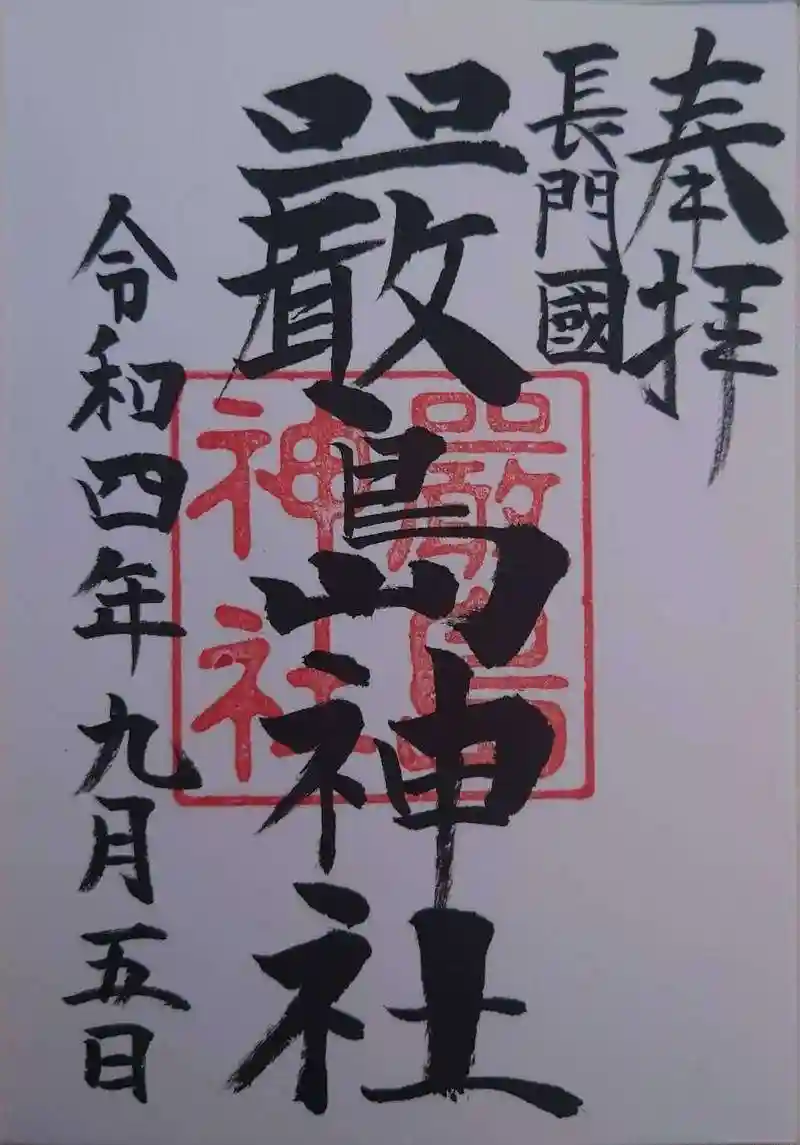 奉拝
長門國
嚴島神社
嚴島
神社
令和四年九月五日